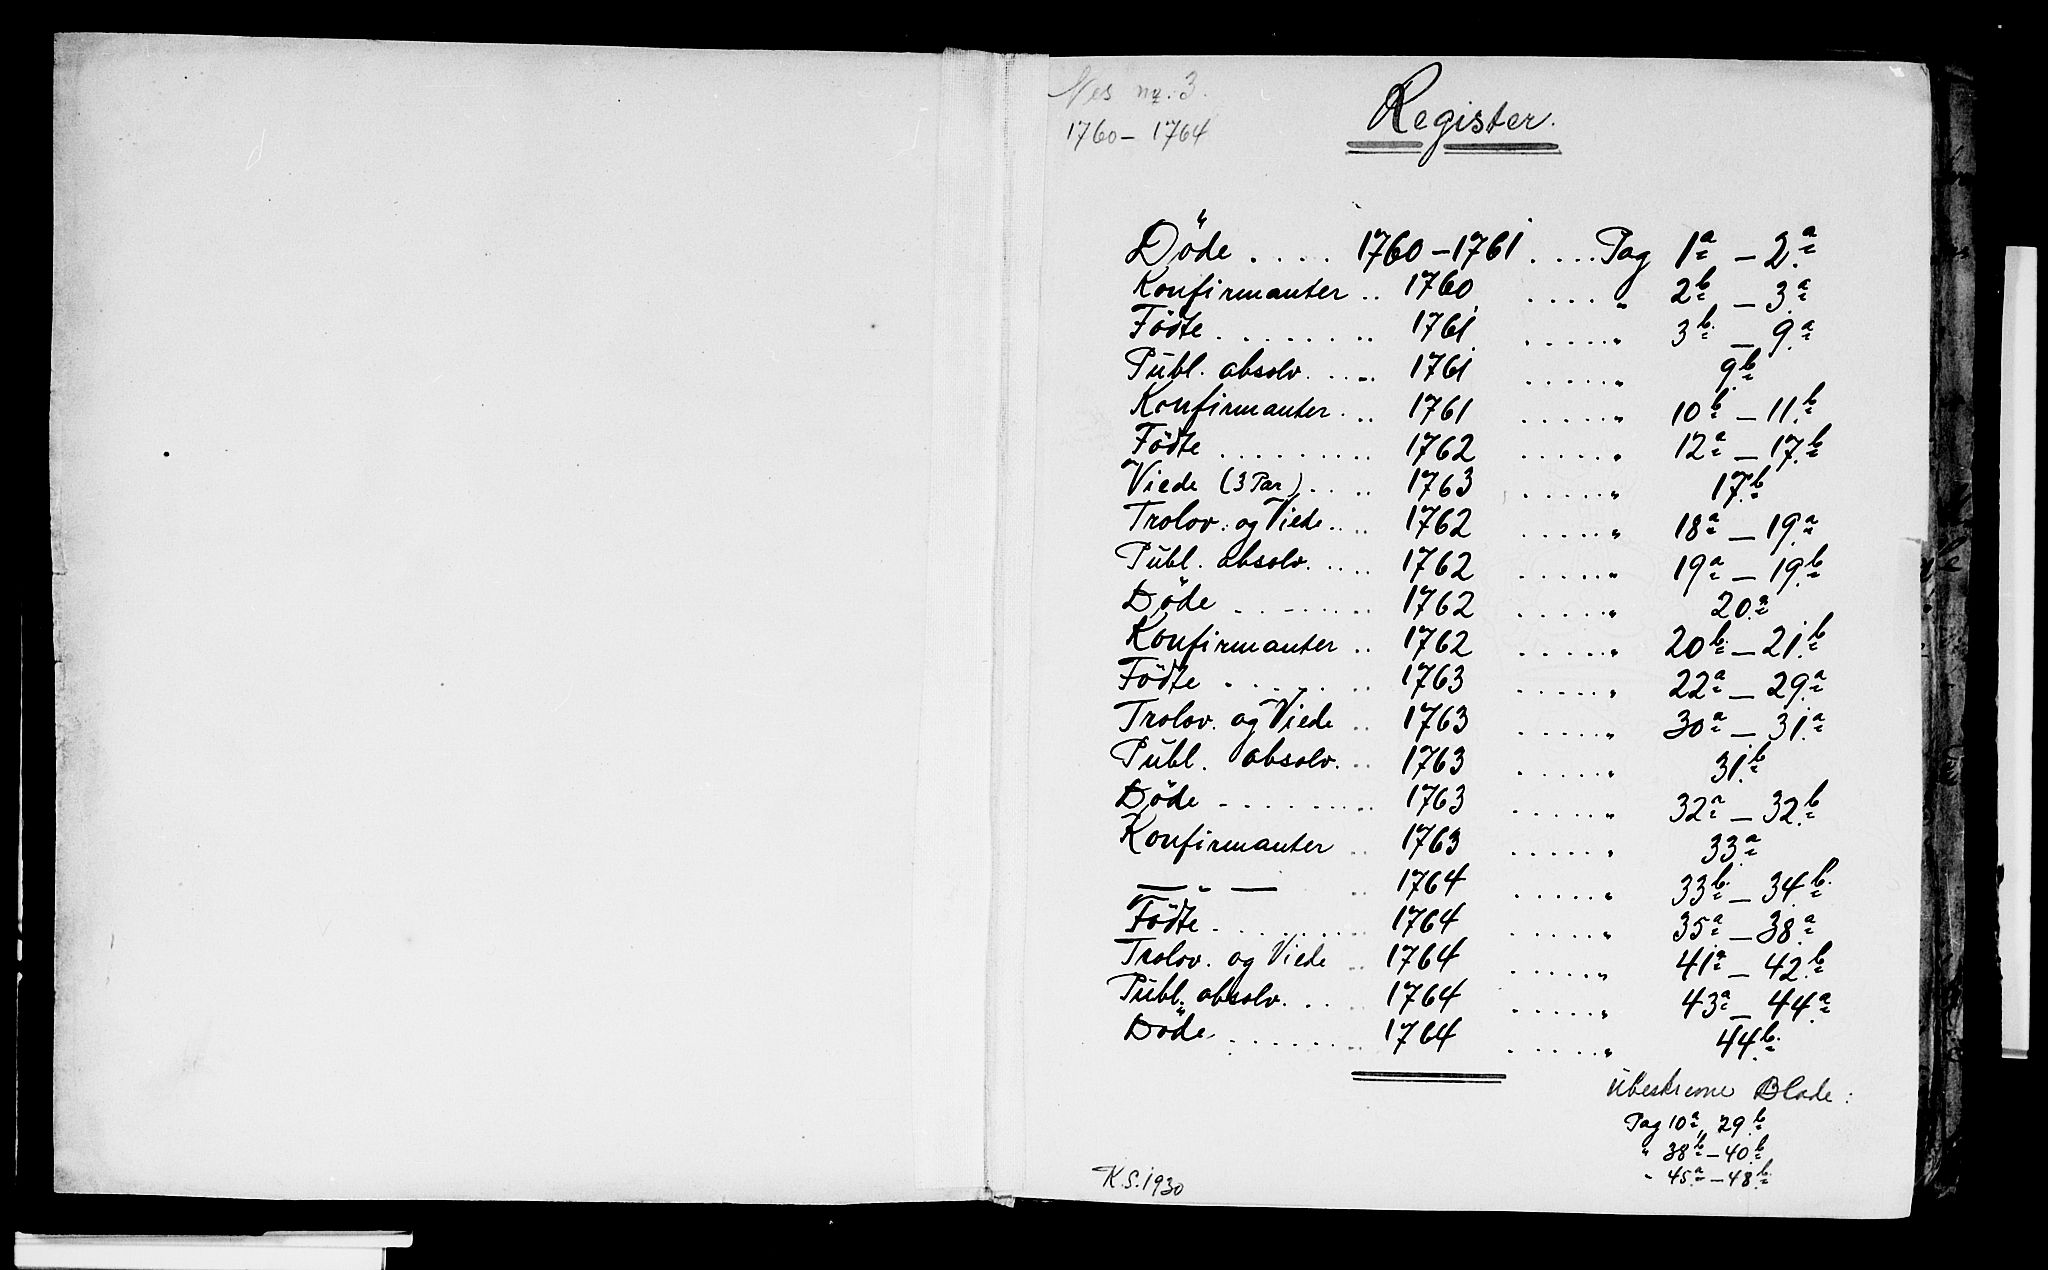 Nes nr. 3.
1760 – 1764
Register.
Döde .... 1760 – 1761 .... Pag 1a – 2a
Konfirmanter .. 1760 .... " 2b – 3a
Födte ........ 1761 ..... " 3b – 9a
Publ. absolv. .... 1761 ..... " 9b
Konfirmanter ... 1761 ..... " 10b – 11b
Födte ......... 1762 ..... " 12a – 17b
Viede (3 Par) .... 1763 ..... " 17b
Trolov. og Viede .... 1762 ..... " 18a – 19a
Publ. absolv. .... 1762 ..... " 19a – 19b
Döde ........ 1762 ..... " 20a
Konfirmanter .. 1762 ..... " 20b – 21b
Födte ....... 1763 ..... " 22a – 29a
Trolov. og Viede .. 1763 ..... " 30a – 31a
Publ. absolv. .. 1763 ..... " 31b
Döde ........ 1763 ..... " 32a – 32b
Konfirmanter .. 1763 ..... " 33a
— " — .. 1764 ..... " 33b – 34b
Födte ........ 1764 ..... " 35a – 38a
Trolov. og Viede .. 1764 ..... " 41a – 42b
Publ. absolv. .... 1764 ..... " 43a – 44a
Döde ........ 1764 ..... " 44b
Ubeskrevne Blade:
Pag 10a, 29b
" 38b – 40b
" 45a – 48b
K.S. 1930